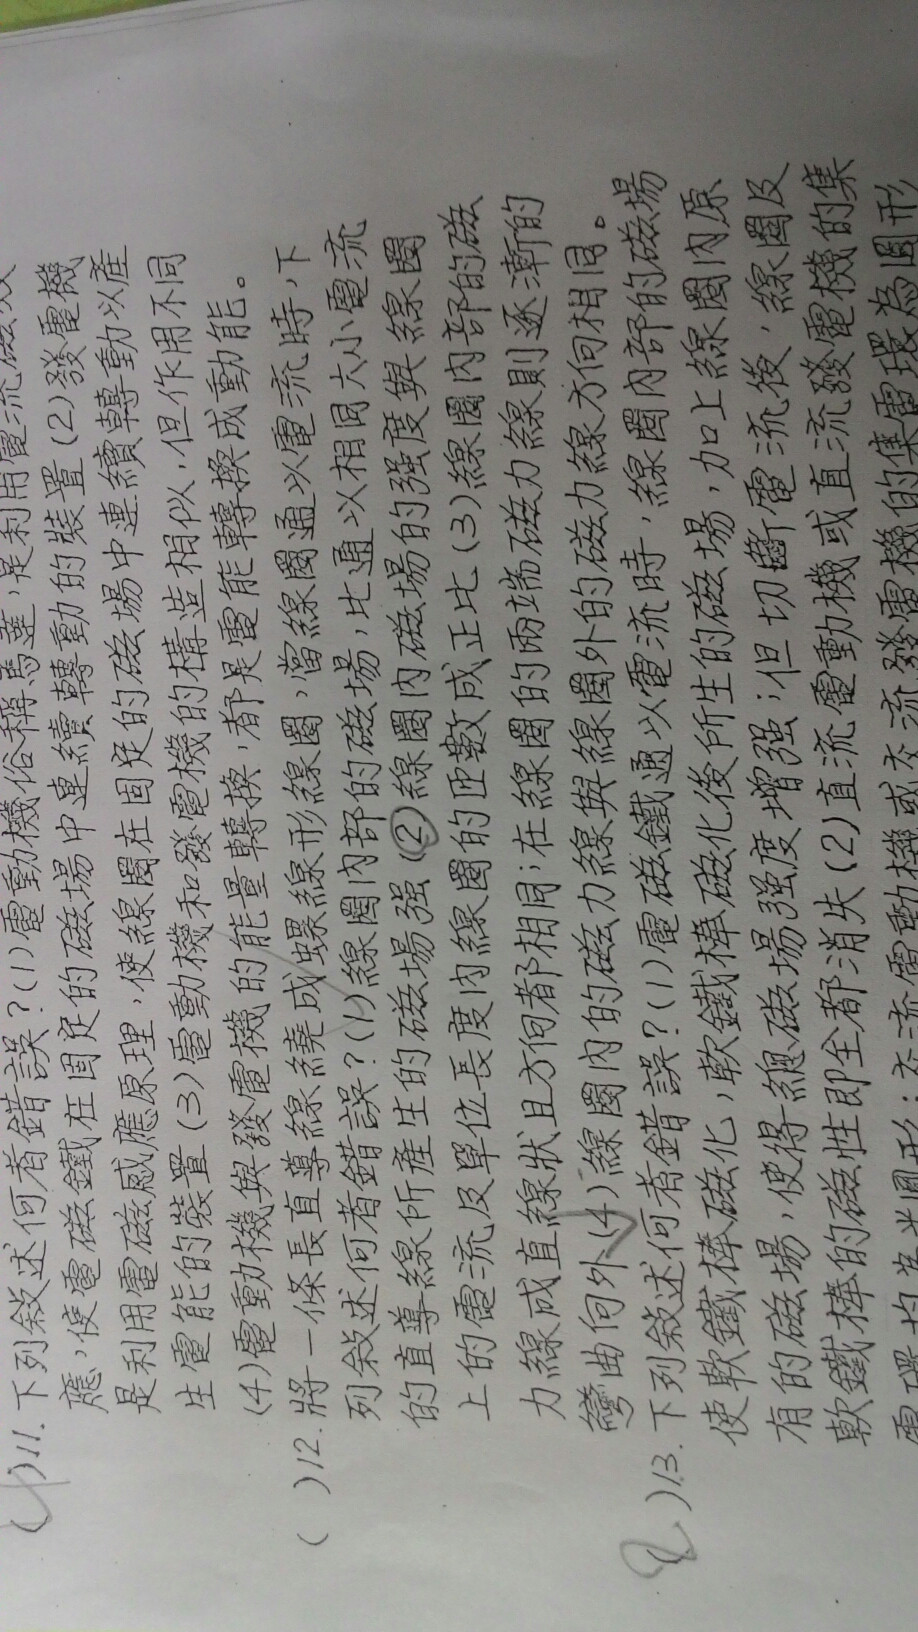 (4)11.下列敘述何者錯誤?(1)電動機俗稱馬達,是利用電流磁效
應,使電磁鐵在固定的磁場中連續轉動的裝置(2)發電機
是利用電磁感應原理,使線圈在固定的磁場中連續轉動以產
生電能的裝置(3)電動機和發電機的構造相似,但作用不同
(4)電動機與發電機的能量轉換,都是電能轉換成動能。
( )12.將一條長直導線繞成螺線形線圈,當線圈通以電流時,下
列敘述何者錯誤?(1)線圈內部的磁場,比通以相同大小電流
的直導線所產生的磁場強(2)線圈內磁場的強度與線圈
上的電流及單位長度內線圈的匝數成正比(3)線圈內部的磁
力線成直線狀且方向都相同;在線圈的兩端磁力線則逐漸的
彎曲向外(4)線圈內的磁力線與線圈外的磁力線方向相同。
(2)13.下列敘述何者錯誤?(1)電磁鐵通以電流時,線圈內部的磁場
使軟鐵棒磁化,軟鐵棒磁化後所生的磁場,加上線圈內原
有的磁場,使得總磁場強度增強;但切斷電流後,線圈及
軟鐵棒的磁性即全都消失(2)直流電動機或直流發電機的集
電環均為半圓形;交流電動機或交流發電機的集電環為圓形